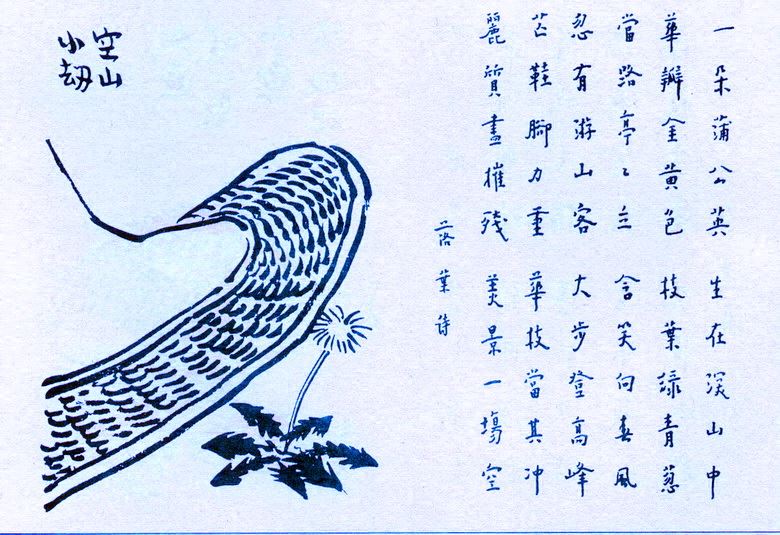 空山
小刼
一朵蒲公英 生在深山中
華瓣金黃色 枝葉綠青葱
當路亭〻立 含笑向春風
忽有游山客 大步登高峰
芒鞋腳力重 華枝當其冲
麗質盡摧殘 美景一場空
落葉詩